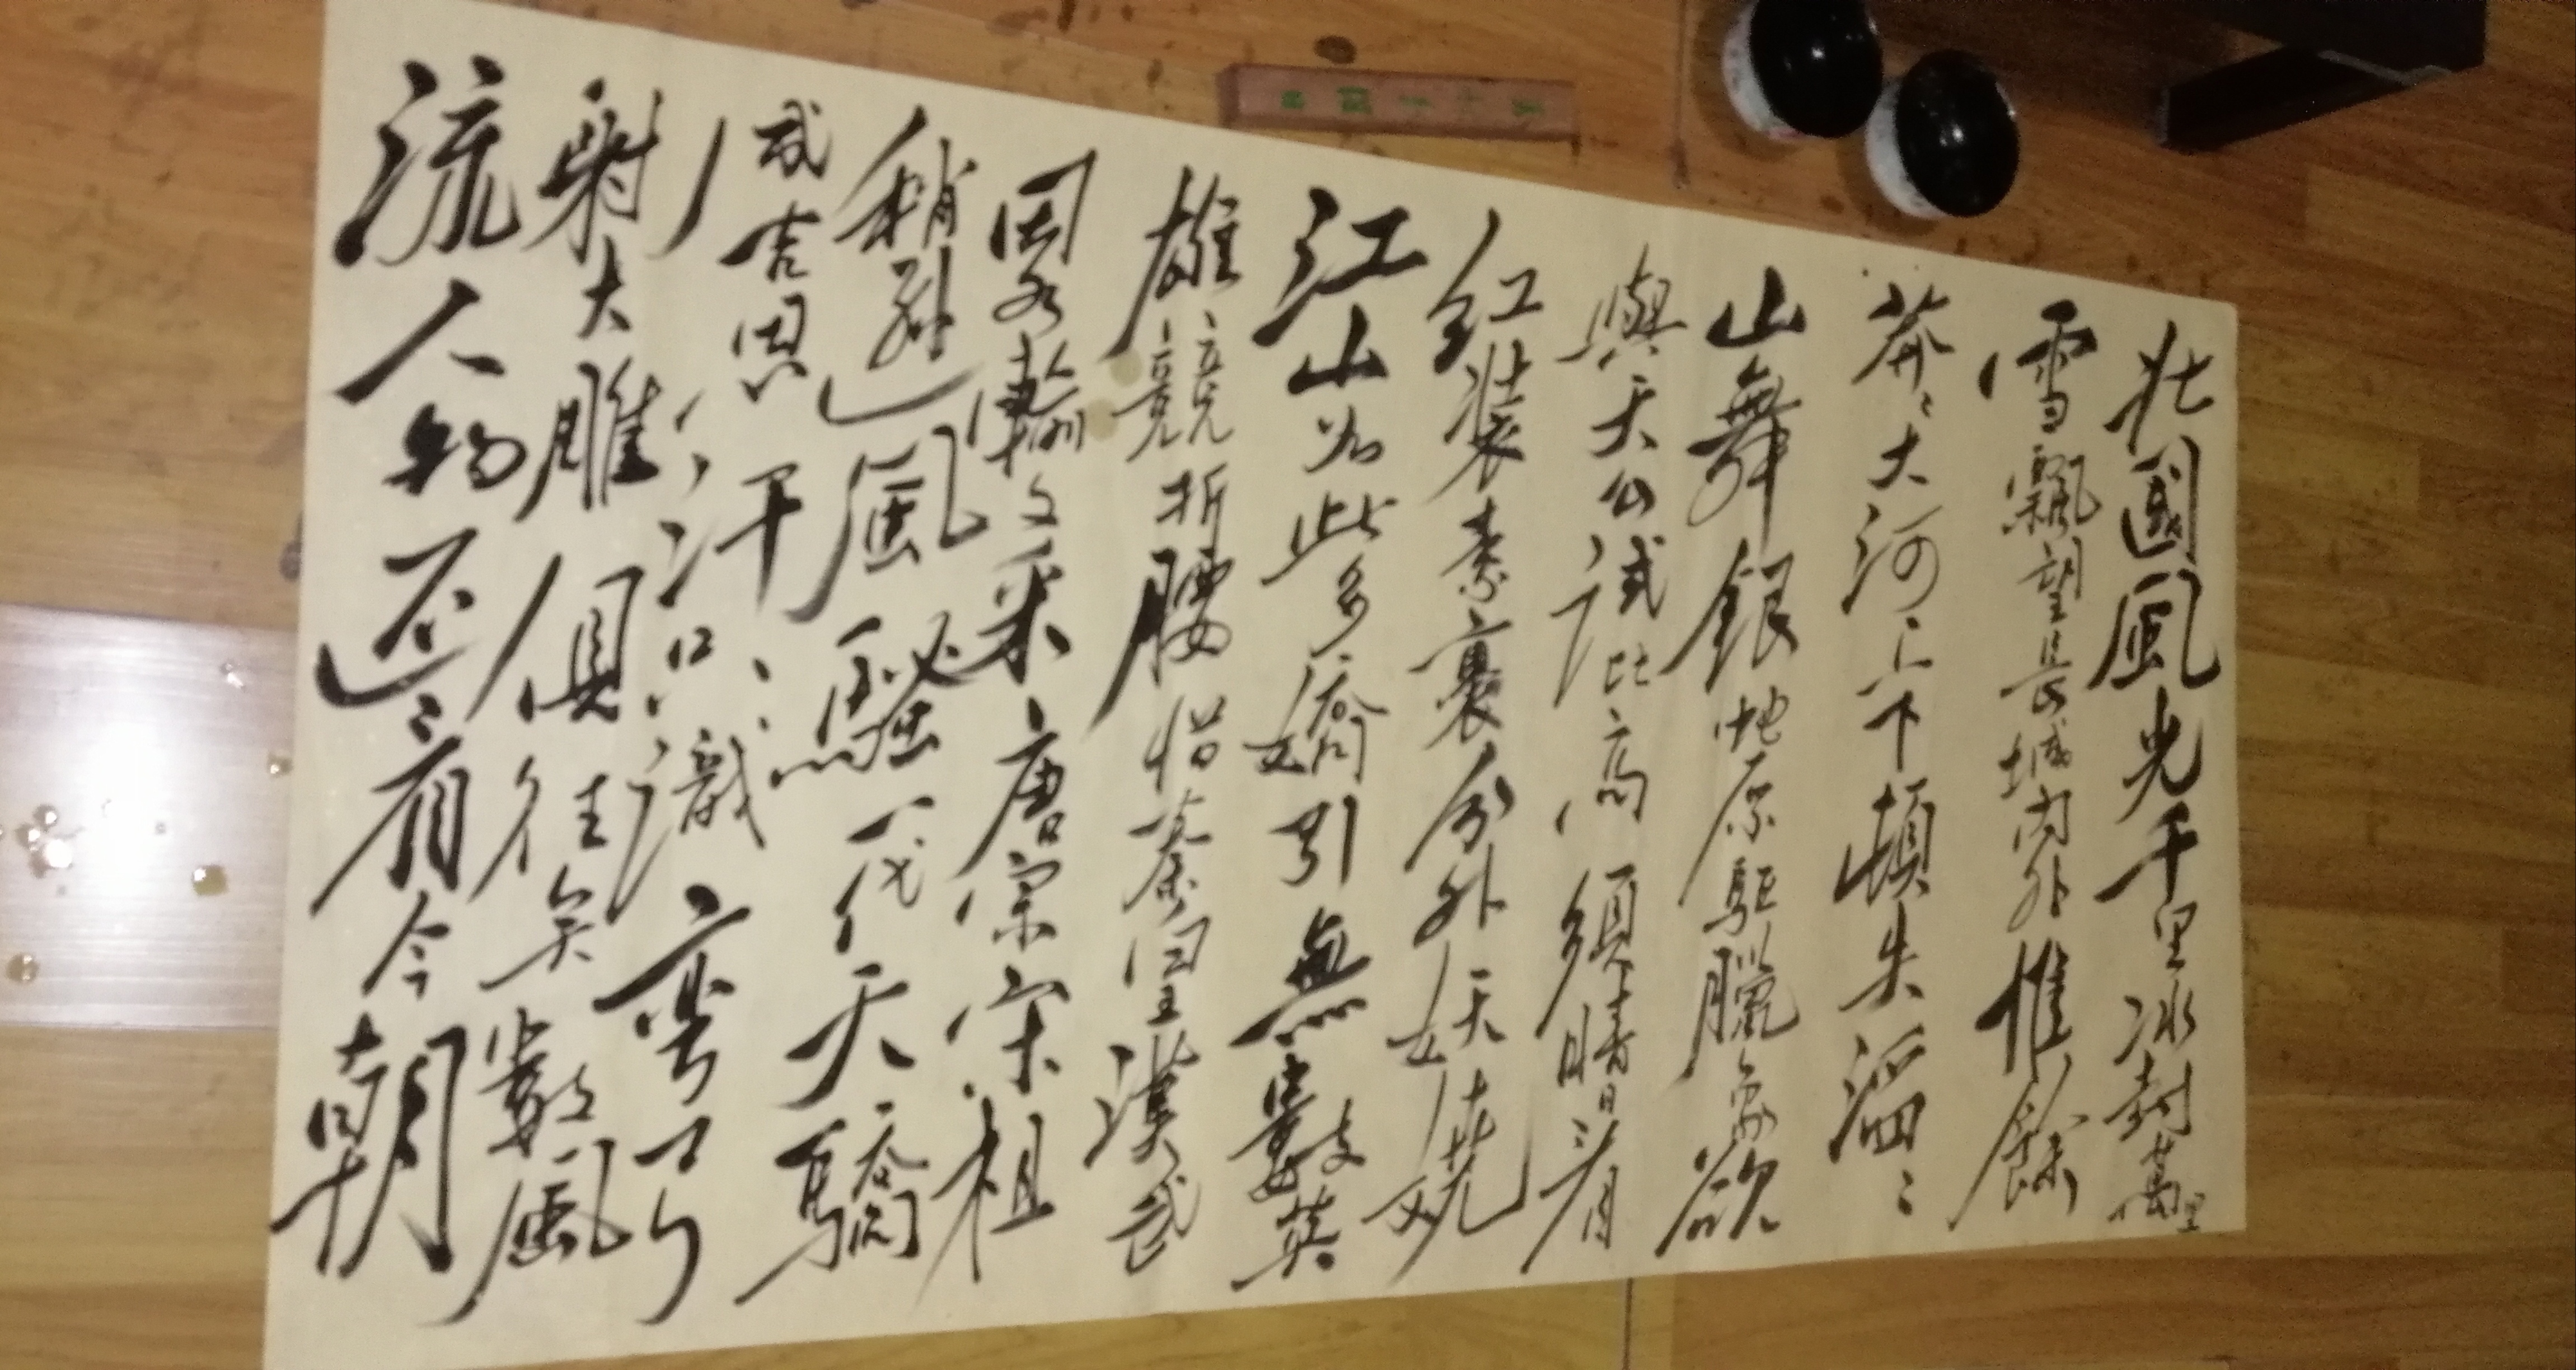 北國風光千里冰封萬里
雪飄望長城內外惟餘
莽〻大河上下頓失滔〻
山舞銀虵原馳臘象欲
與天公試比高須晴日看
紅裝素裹分外妖嬈
江山如此多嬌引無數英
雄競折腰惜秦皇漢武
畧輸文采唐宗宋祖
稍遜風騷一代天驕
成吉思汗只識彎弓
射大雕俱往矣數風
流人物還看今朝